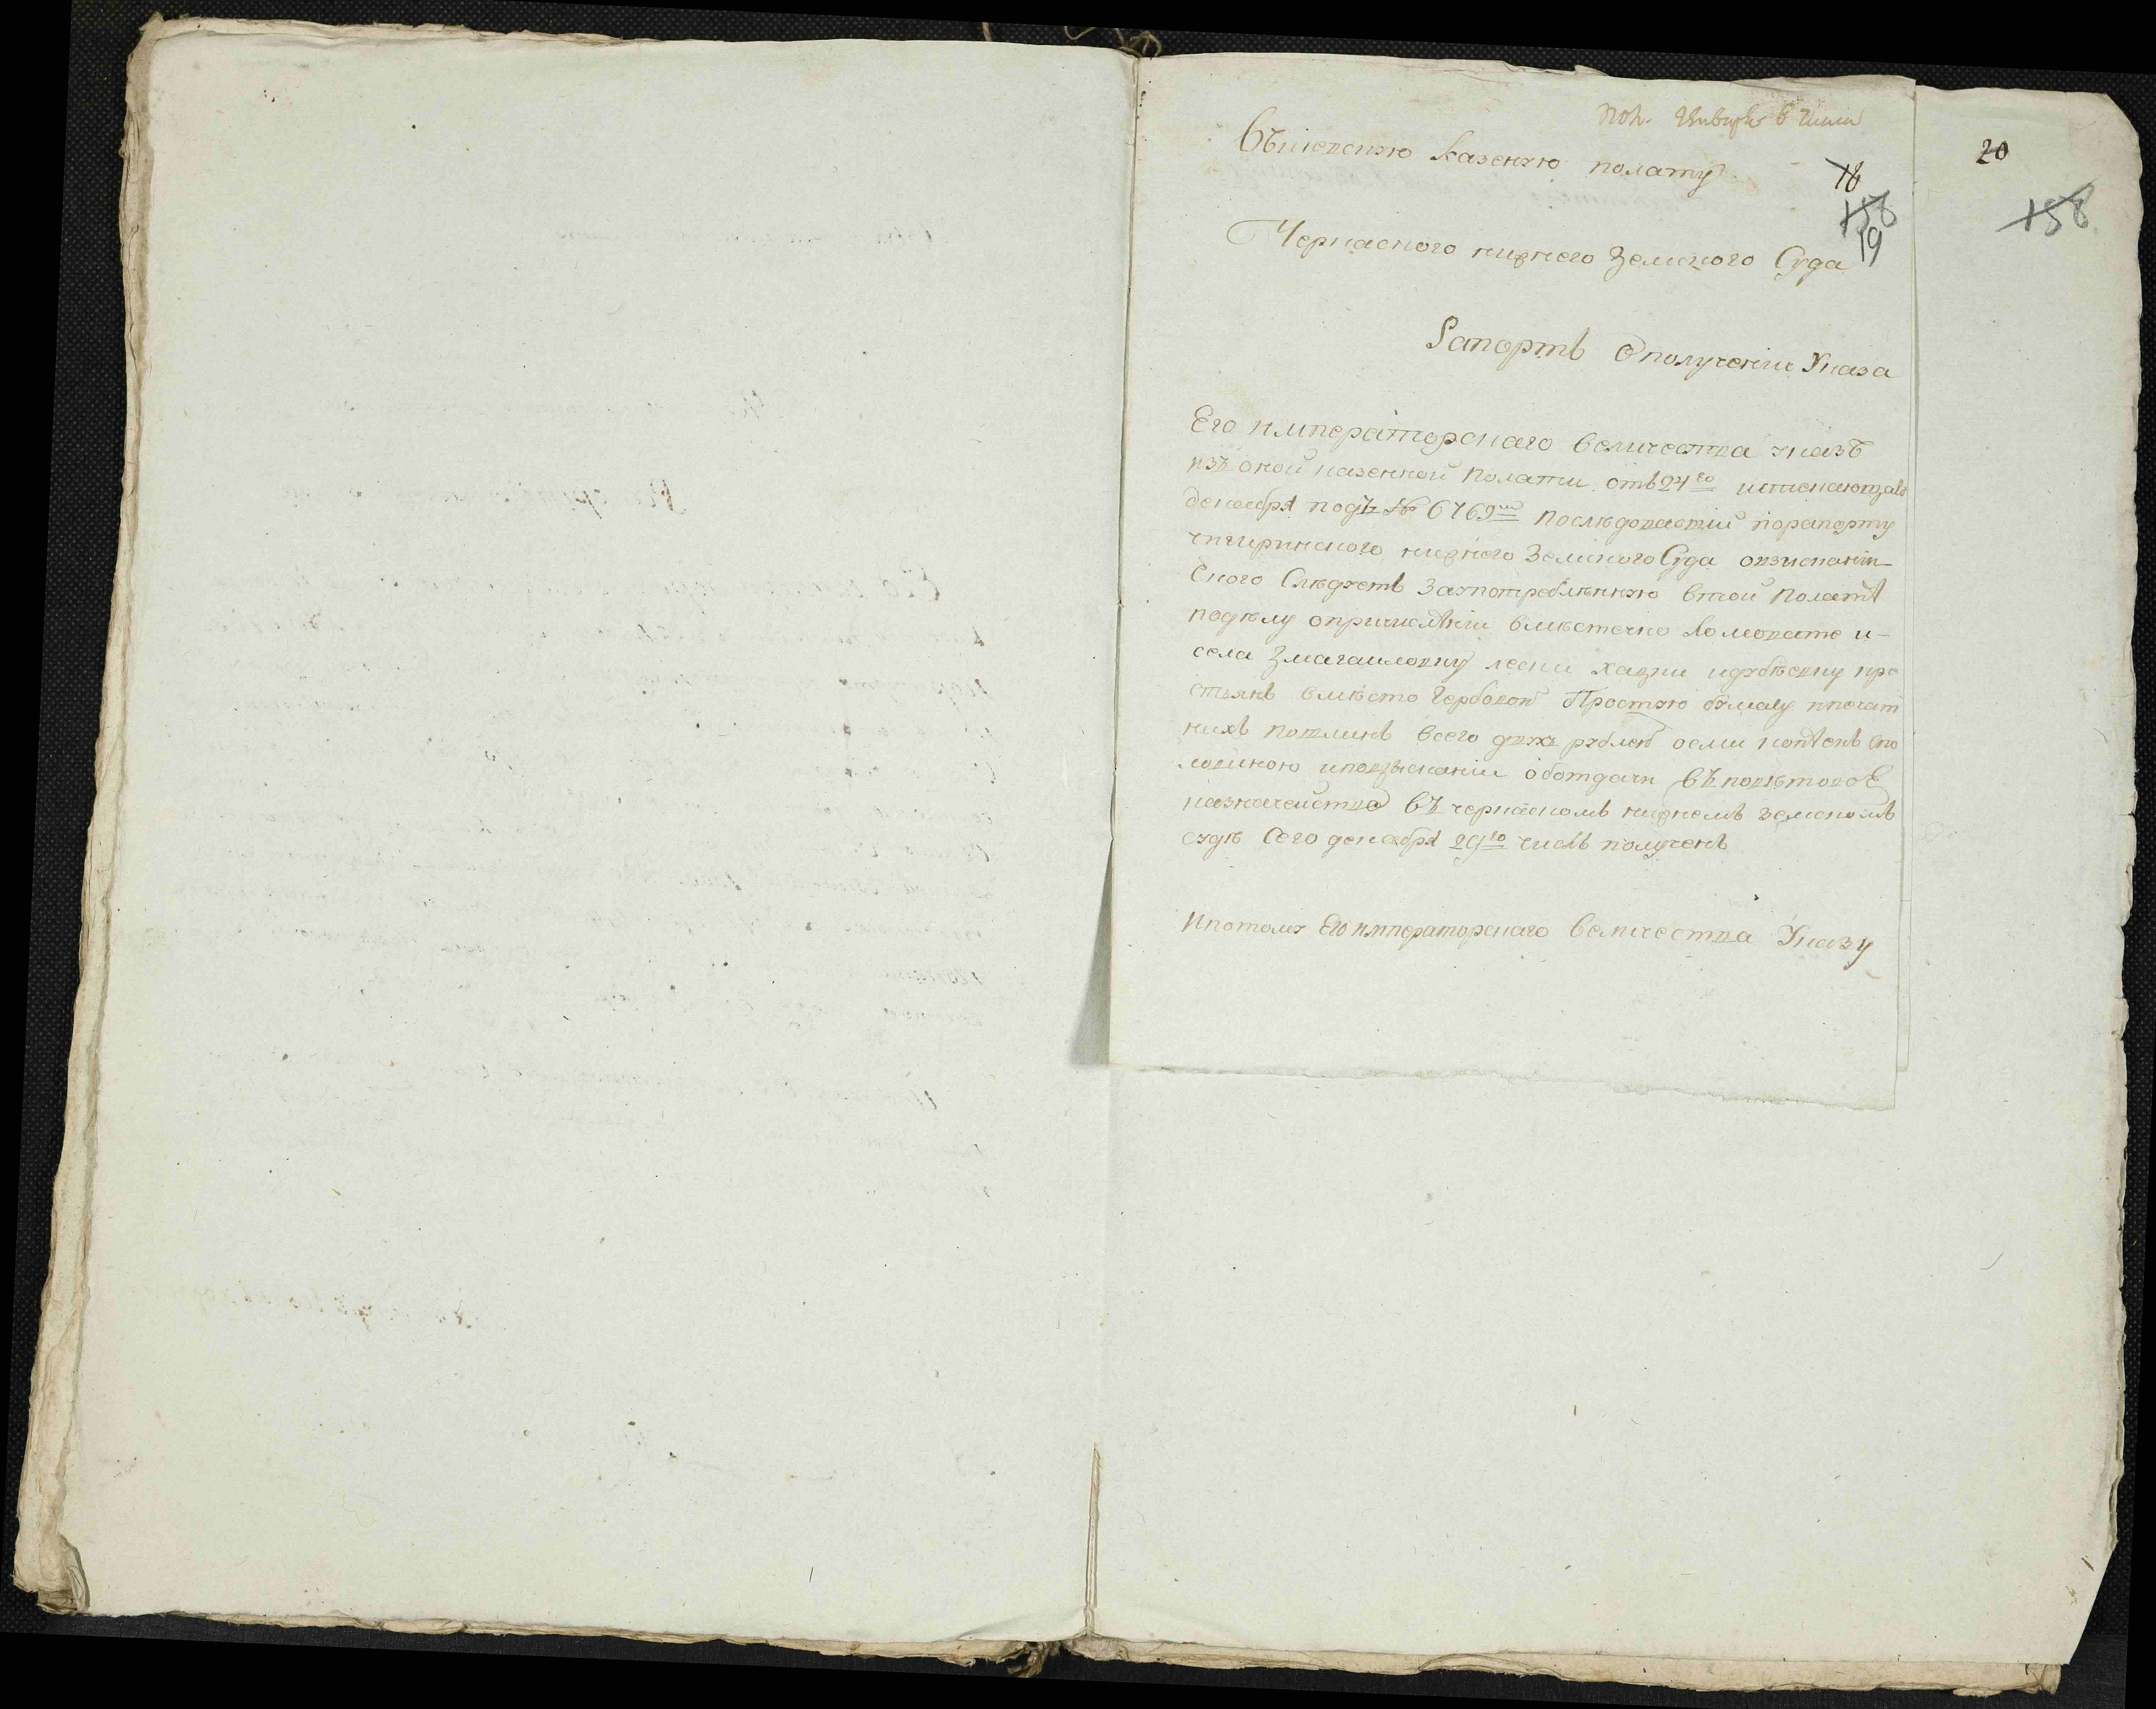 пол. Генваря 6 числа
Въкиевскую Казенную полату
20
18
158
19
158
Черкаского нижнего Земского Суда
Рапортъ Ополученіи Указа
Его императорскаго величества указъ
изъ оной казенной полати отъ 24го истекающаго
декабря подъ № 6769м последовавшій порапорту
чигиринского нижнего Земского Суда овзисканіи
Следуетъ Заупотребленную втой полате
поделу опричисленіи вместечко и-
села Змагайловку крe
стьянъ вместо Гербовой Простую бумагу ипечат
нихъ пошлинъ всего двухъ рублей осми копеекъ спо
ловиною иповзысканіи оботдачи въ поветовое
казначейство въ черкаскомъ нижнемъ земскомъ
суде Сего декабря 29го числъ полученъ
Ипотому Его императорскаго величества Указу